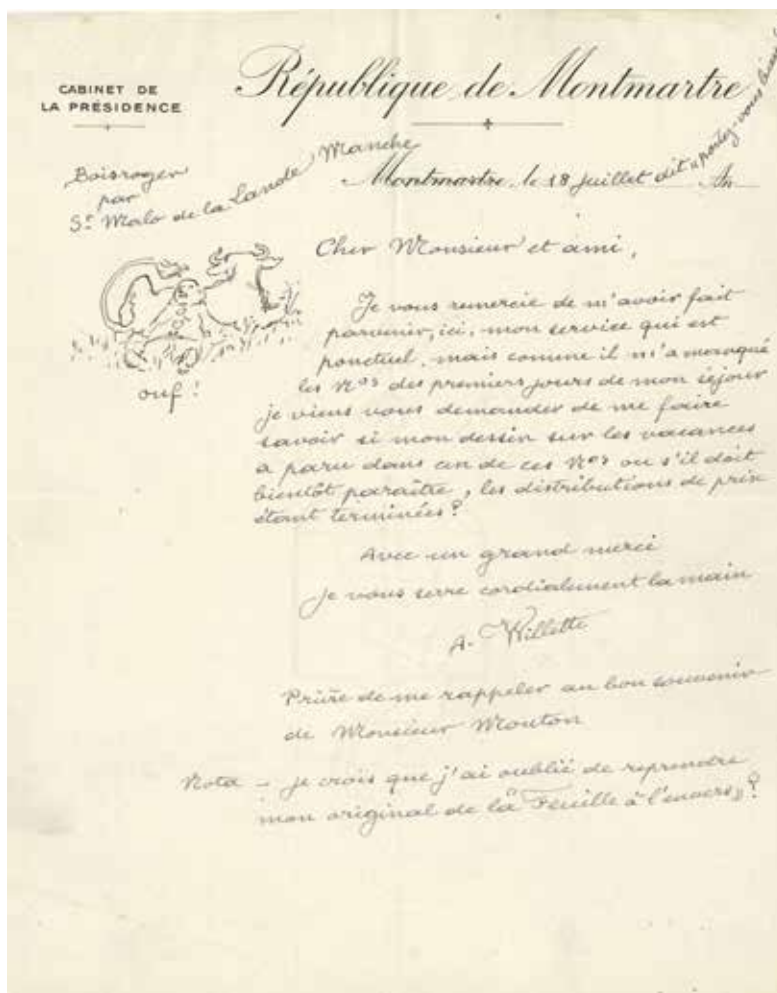 CABINET DE
LA PRÉSIDENCE
République de Montmartre
Boisroger
par
St Malo de la Lande Manche
Montmartre, le 18 juillet dit "portez-vous bien" An
Cher Monsieur et ami,
Je vous remercie de m'avoir fait
parvenir, ici, mon service qui est
ponctuel, mais comme il m'a manqué
les Nos des premiers jours de mon séjour
je viens vous demander de me faire
savoir si mon dessin sur les vacances
a paru dans un de ces Nos ou s'il doit
bientôt paraître, les distributions de prix
étant terminées?
ouf!
Avec un grand merci
je vous serre cordialement la main
A. Willette
Prière de me rappeler au bon souvenir
de Monsieur Mouton
Nota – je crois que j'ai oublié de reprendre
mon original de la "Feuille à l'envers"?